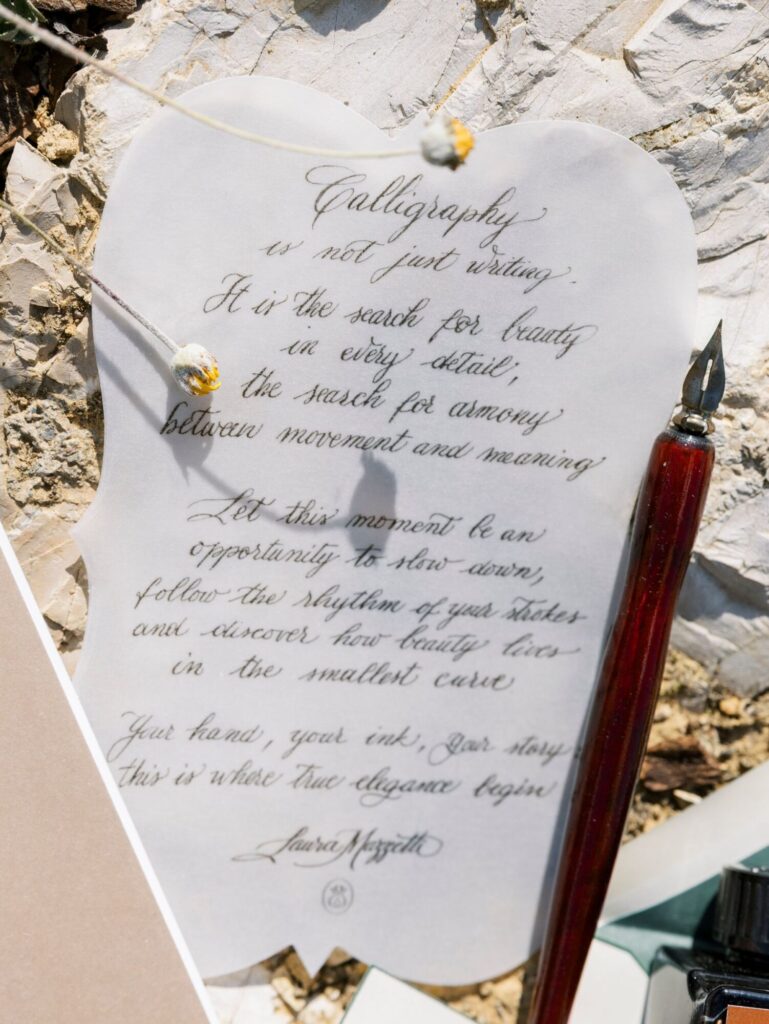 Calligraphy
is not just writing.
It is the search for beauty
in every detail,
the search for armony
between movement and meaning
Let this moment be an
opportunity to slow down,
follow the rhythm of your strokes
and discover how beauty lives
in the smallest curve
Your hand, your ink, your story:
this is where true elegance begin
Laura Mazzetti